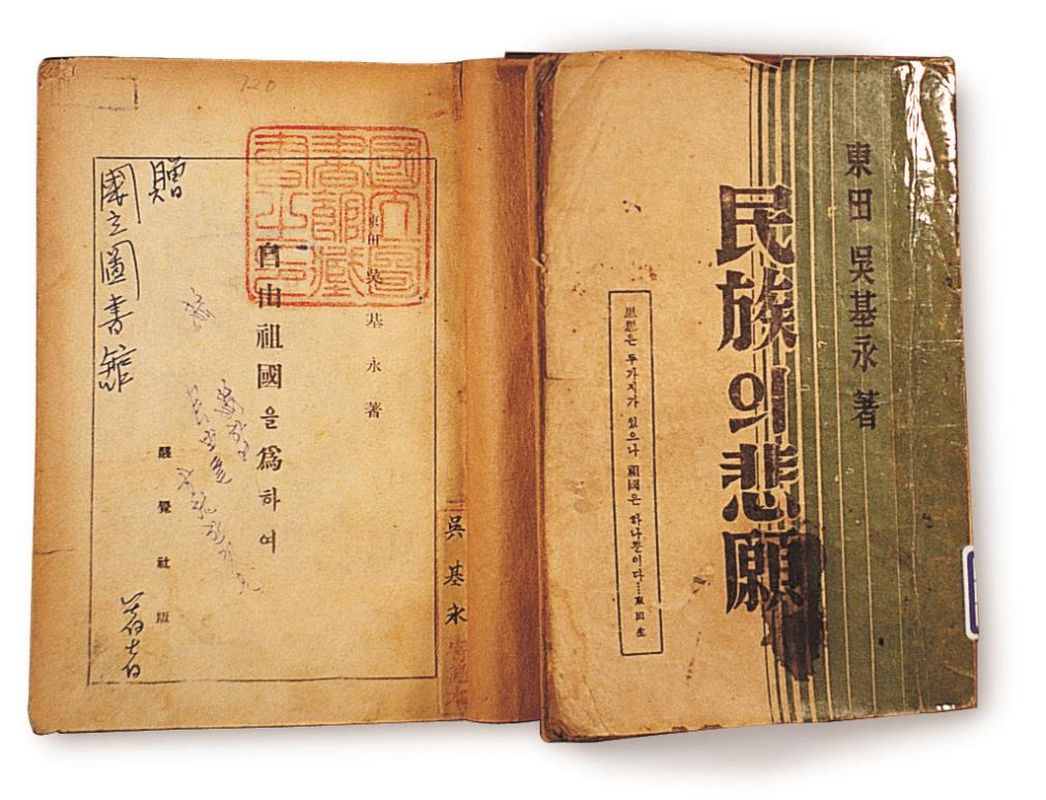 東田 吳基永 著
民族의悲願
思想은 두가지가 있으나 祖國은 하나뿐이다…東田生
吳基永
國立圖
書館藏
書之印
東田 吳基永 著
自由祖國을 爲하여
醒覺社版
贈
國立圖書館
著者
120